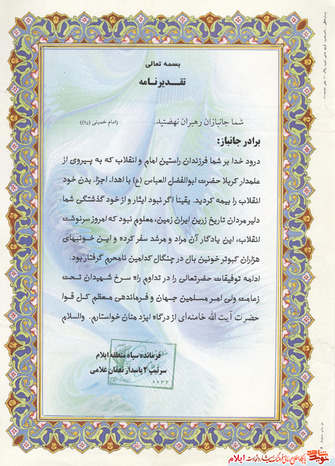 بسمه تعالی
تقدیرنامه
شما جانبازان رهبران نهضتید. (امام خمینی (ره))
برادر جانباز:
درود خدا بر شما فرزندان راستین امام و انقلاب که به پیروی از
علمدار کربلا حضرت ابوالفضل العباس (ع) با اهداء اجزاء بدن خود
انقلاب را بیمه کردید. یقیناً اگر نبود ایثار و از خود گذشتگی شما
دلیر مردان تاریخ زرین ایران زمین، معلوم نبود که امروز سرنوشت
انقلاب، این یادگار آن مراد و مرشد سفر کرده و این خونبهای
هزاران کبوتر خونین بال در چنگال کدامین نامحرم گرفتار بود.
ادامه توفیقات حضرتعالی را در تداوم راه سرخ شهیدان تحت
زعامت ولی امر مسلمین جهان و فرماندهی معظم کل قوا
حضرت آیت الله خامنه‌ای از درگاه ایزد منان خواستارم. والسلام
فرمانده سپاه منطقه ایلام
سرتیپ ۲ پاسدار نعمان غلامی
ایلام